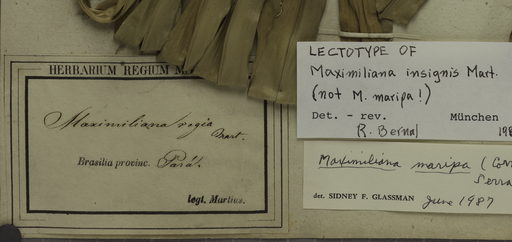 HERBARIUM REGIUM M
Maximiliana regia
Mart.
Brasilia provinc. Pará.
legt. Martius.
LECTOTYPE OF
Maximiliana insignis Mart.
(not M. maripa!)
Det. - rev. München
R. Bernal 198
Maximiliana maripa (Corr
Serra
det. SIDNEY F. GLASSMAN June 1987